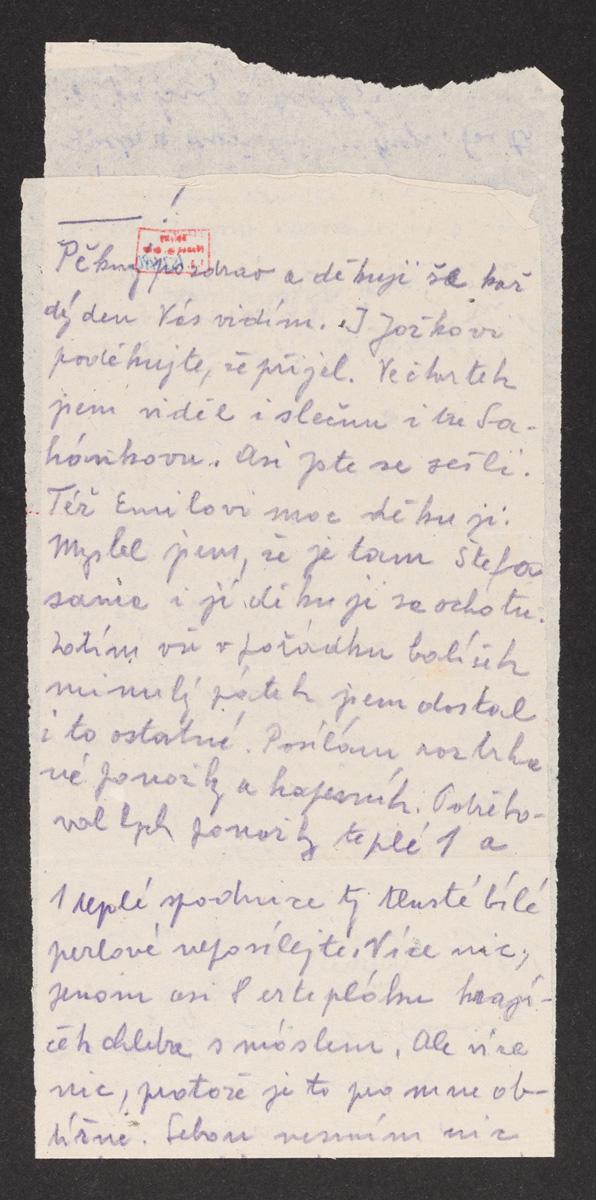 !
Pěkný pozdrav a děkuji že kaž
dý den Vás vidím. I Jožkovi
poděkujte, že přijel. Ve čtvrtek
jsem viděl i slečnu i
Asi jste se sešli.
Též Emilovi moc děkuji.
Myslel jsem, že je tam Štefa
sama i jí děkuji za ochotu.
Zatím vše v pořádku balíček
minulý pátek jsem dostal
i to ostatné. Posílám roztrha
né ponožky a kapesník. Potřebo-
val bych ponožky teplé 1 a
1 teplé spodnice ty tlusté bílé
perlové neposílejte. Více nic,
jenom asi 8 erteplóku krají-
čěk chleba s máslem. Ale více
nic, protože je to pro mne ob-
tížné. Sebou nesmím nic